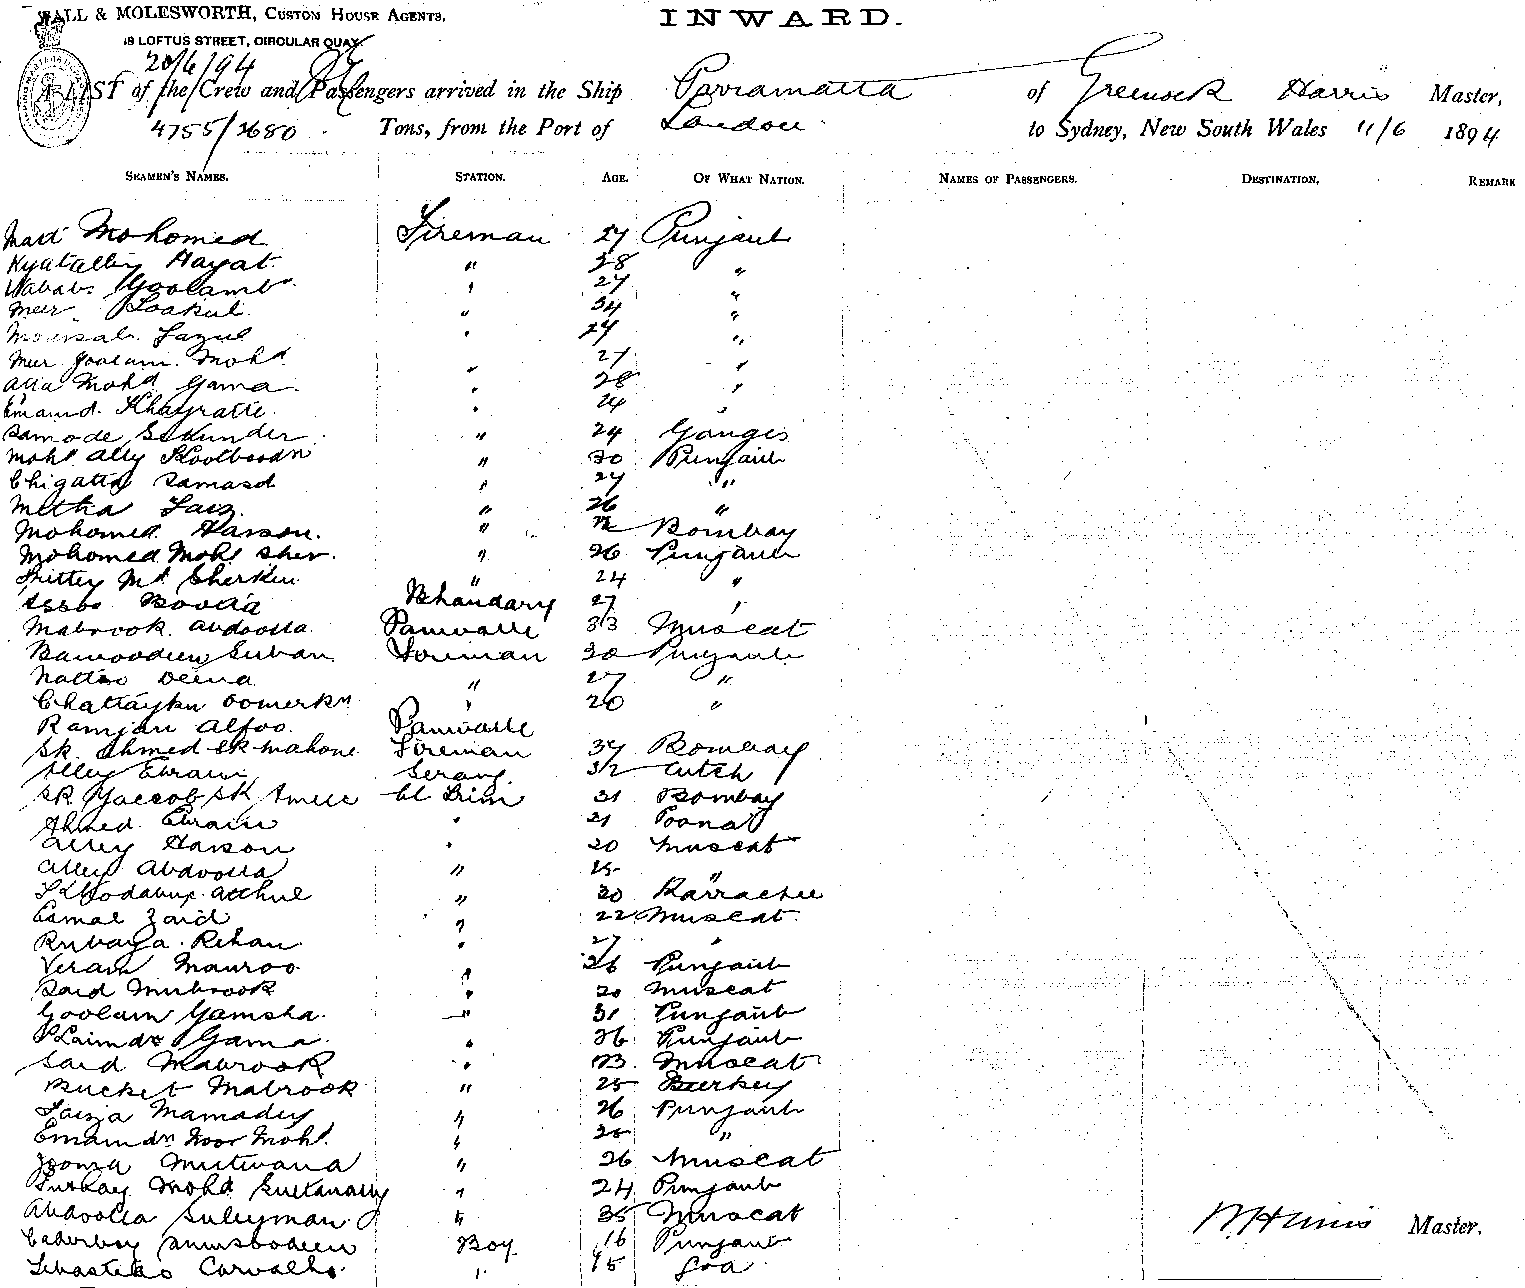 WALL & MOLESWORTH, CUSTOM HOUSE AGENTS,
18 LOFTUS STREET, CIRCULAR QUAY.
INWARD.
20/6/94
A LIST of the Crew and Passengers arrived in the Ship Parramatta of Greenock Harris Master,
4755/2680 Tons, from the Port of London to Sydney, New South Wales 11/6 1894
SEAMEN'S NAMES. STATION. AGE. OF WHAT NATION. NAMES OF PASSENGERS. DESTINATION. REMARK
Mohomed Fireman 27 Punjaub
Hayat " 28 "
Goolamb " 27 "
Meer " 34 "
Fazul " 27 "
Meer Goolam Mohd " 27 "
Atta Mohd Gama " 28 "
Khayratie " 24 "
Samode Sekunder " 24 Ganges
Mohd Ally Kootboodn " 30 Punjaub
Chigatta Samasd " 27 "
Metha Faiz " 26 "
Mohomed Hasson " Bombay
Mohomed Mohd Sher " 26 Punjaub
Md Sherkin " 24 "
Essoo Boodia Bhandary 27 "
Mabrook Abdoolla Paniwalla 33 Muscat
Bamoodeen Suban Fireman 30 Punjaub
Natho Deena " 27 "
Oomerkn " 26 "
Ramjan Alfoo Paniwalla
Sk Ahmed Sk Mahone Fireman 37 Bombay
Alley Ebram Serang 32 Cutch
Sk Yaccob Sk Ameer Cl Trim 31 Bombay
Ahmed Ebram " 21 Poona
Alley Hasson " 20 Muscat
Alley Abdoolla " 25 "
Sk Hodabux " 30 Karrachee
Esmal Zaid " 22 Muscat
Rubaya Rehan " 27 "
Veram Mauroo " 26 Punjaub
Said Mubrook " 20 Muscat
Goolam Yamsha " 31 Punjaub
Gama " 26 Punjaub
Said Mabrook " 23 Muscat
Bucket Mabrook " 25 Burkey
Faiza Mamadey " 26 Punjaub
Emamdn Noor Mohd " 25 "
Jooma Mutwana " 26 Muscat
Mohd Sultanally " 24 Punjaub
Abdoolla Suleyman " 35 Muscat
Caderboy Shumsoodeen Boy 16 Punjaub
Sebastiao Carvalho " 15 Goa
Master.